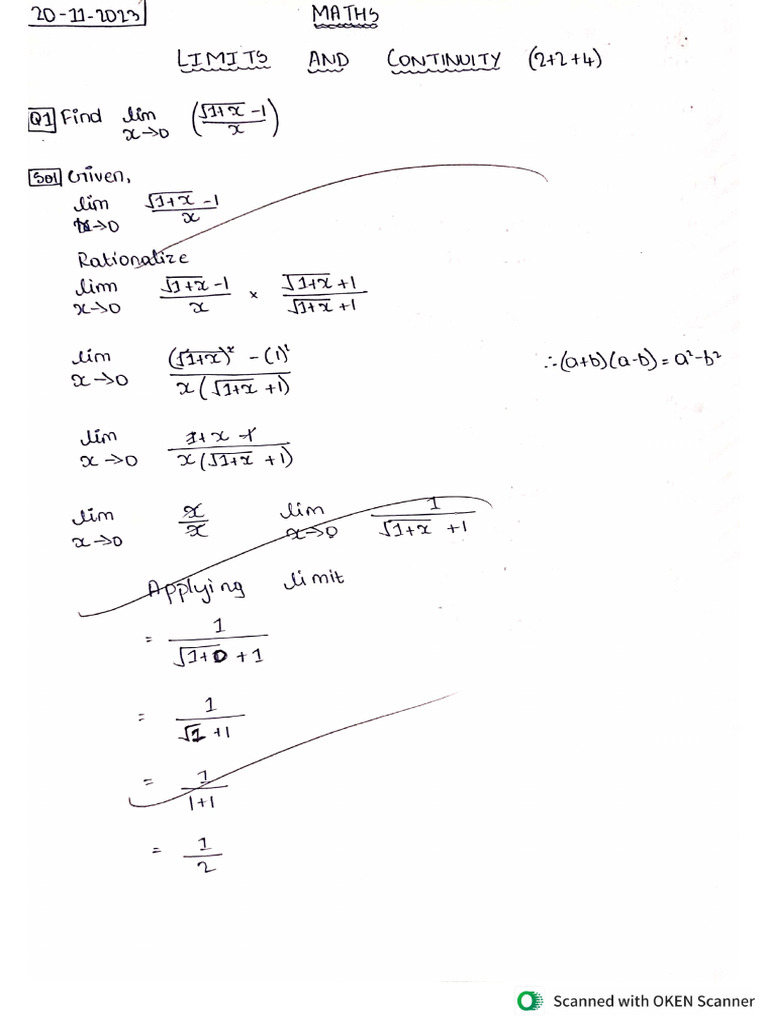 20-11-2023 MATHS
LIMITS AND CONTINUITY (2+2+4)
Q1 Find lim x→0 (√1+x -1 / x)
Sol Given,
lim x→0 √1+x -1 / x
Rationalize
lim x→0 √1+x -1 / x × √1+x +1 / √1+x +1
lim x→0 (√1+x)² - (1)² / x(√1+x +1) ∴(a+b)(a-b) = a²-b²
lim x→0 1+x-1 / x(√1+x +1)
lim x→0 x/x lim x→0 1 / √1+x +1
Applying limit
= 1 / √1+0 +1
= 1 / √1 +1
= 1 / 1+1
= 1 / 2
Scanned with OKEN Scanner